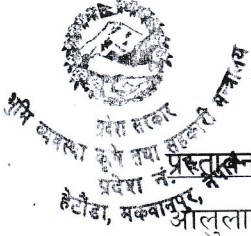 प्रदेश सरकार
भूमि व्यवस्था कृषि तथा सहकारी मन्त्रालय
प्रदेश नं.
हेटौंडा, मकवानपुर,
आलुला